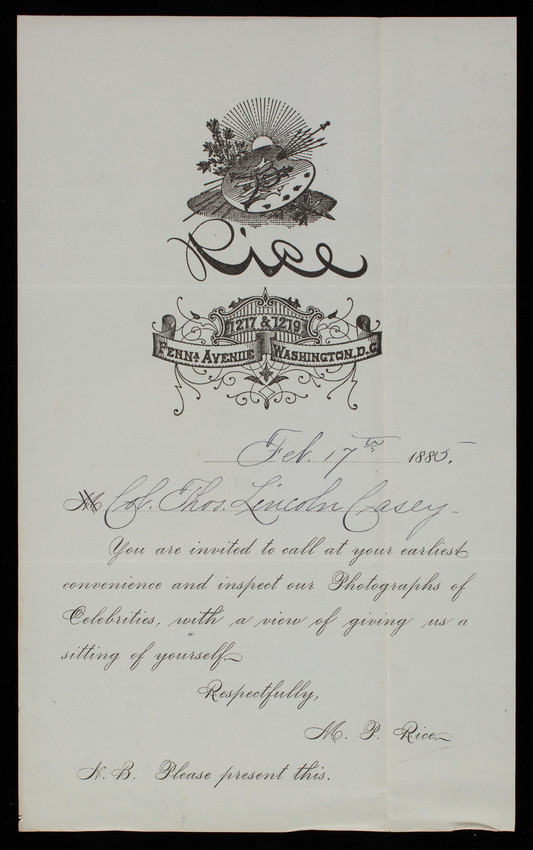 Rice
1217 & 1219
PENNA. AVENUE WASHINGTON, D.C.
Feb. 17th 1885.
M Col. Thos. Lincoln Casey.
You are invited to call at your earliest
convenience and inspect our Photographs of
Celebrities, with a view of giving us a
sitting of yourself.
Respectfully,
M. P. Rice.
N.B. Please present this.